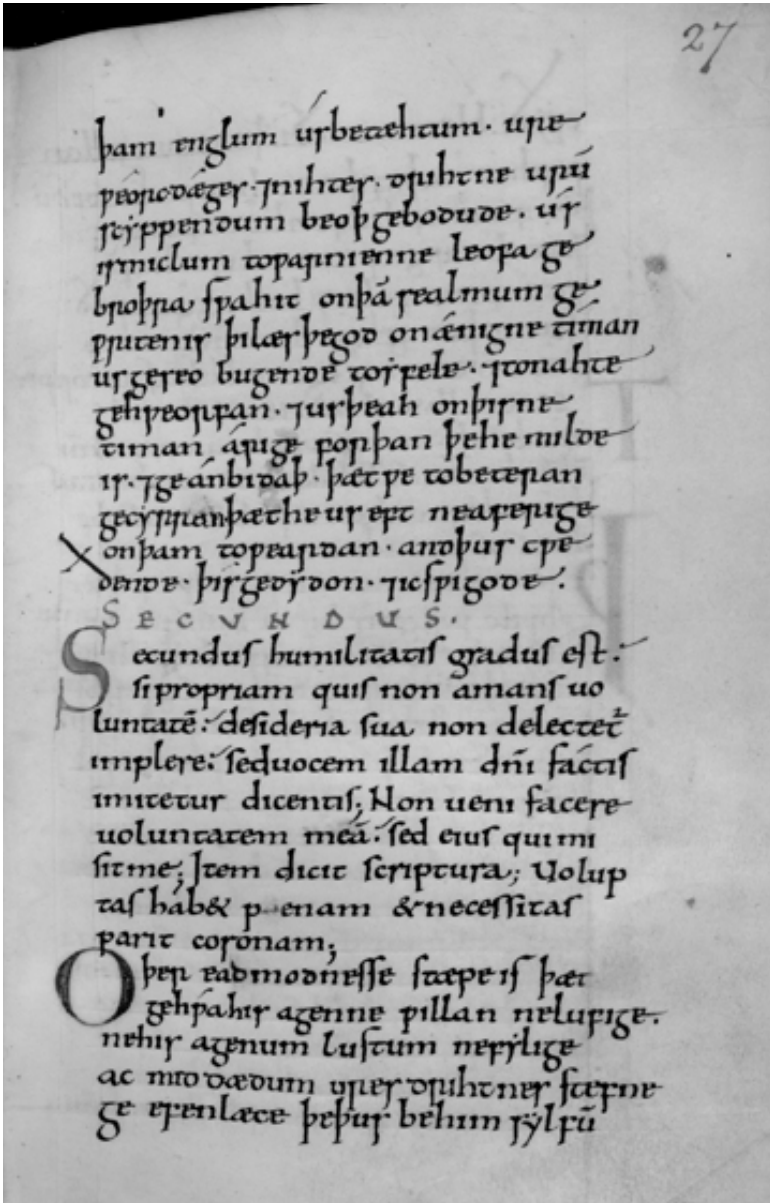 27
þam englum us betæhtum · ure
ƿeorc dæges · ⁊ nihtes · drihtne urū
scyppendum beoþ gebodude · us
is miclum to ƿarnienne leofa ge
broþra sƿa hit on þā sealmum ge
ƿriten is þi læs þe god on ænigne timan
us geseo bugende to yfele · ⁊ to nahte
gehƿeorfan · ⁊ us þeah on þisne
timan árige forþan þe he milde
is · ⁊ geánbidaþ · þæt ƿe to beteran
gecyrran þæt he us eft ne aferige
on þam toƿeardan · and þus cƿe
dende · þis gedydon · ⁊ ic sƿigode ·
SECUNDUS ·
Secundus humilitatis gradus est ·
si propriam quis non amans uo
luntatē · desideria sua non delectet̃
implere · sed uocem illam dñi factis
imitetur dicentis; Non ueni facere
uoluntatem meā · sed eius qui mi
sit me; Item dicit scriptura; Uolup
tas hab& p enam & necessitas
parit coronam;
Oþer eadmodnesse stæpe is þæt
gehƿa his agenne ƿillan ne lufige ·
ne his agenum lustum ne fylige
ac mid dædum ures drihtnes stefne
ge efenlæce þe þus be him sylfū